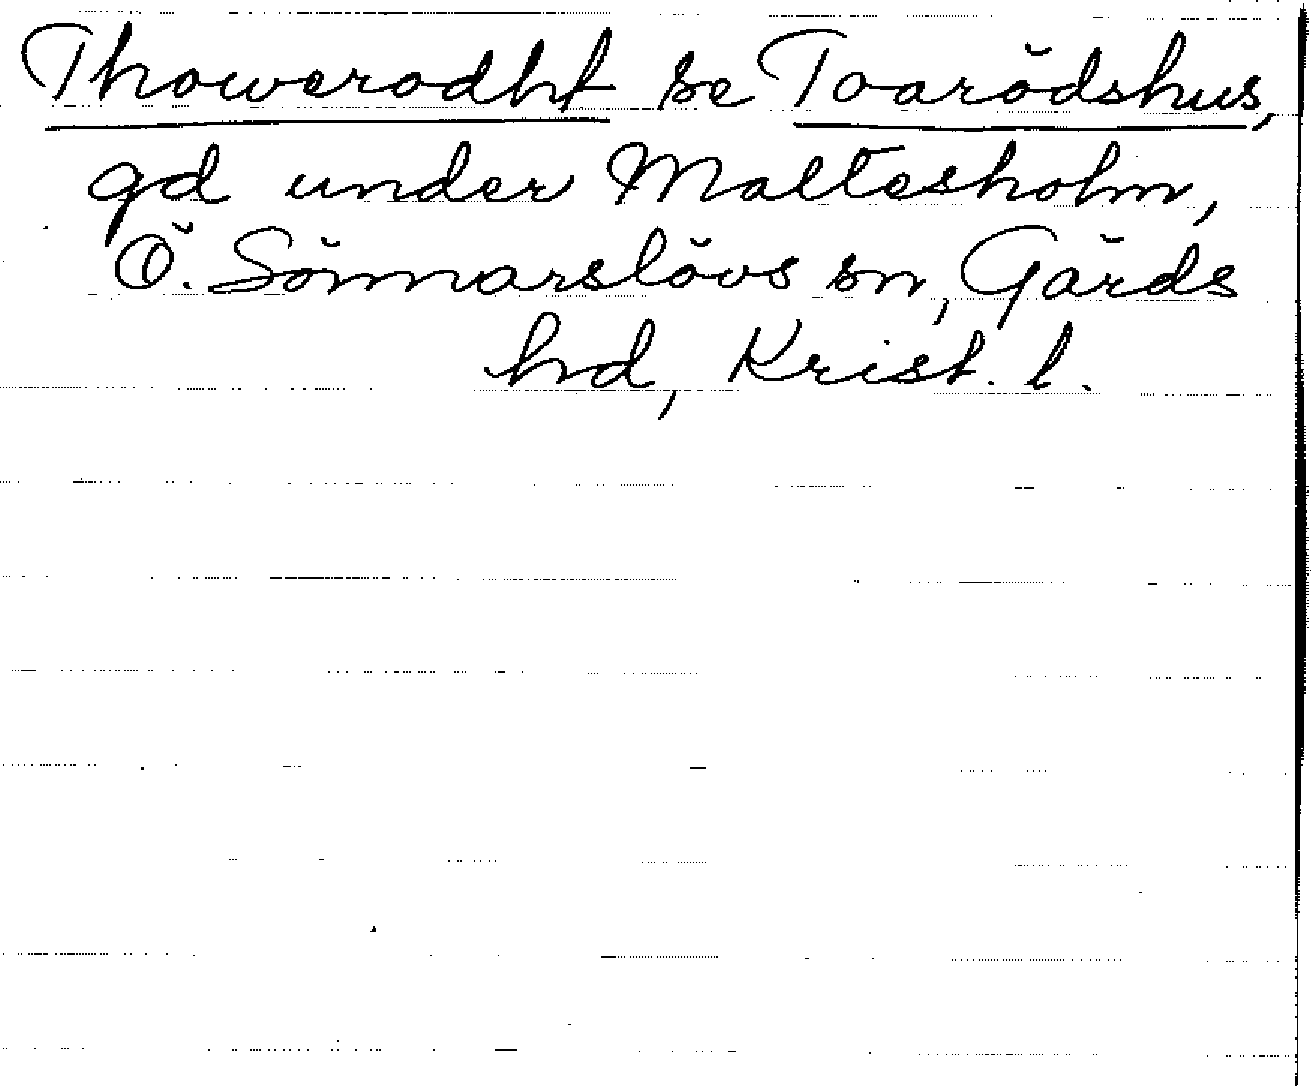 Thowerodht se Toarödshus,
gd under Maltesholm,
Ö. Sönnarslövs sn, Gärds
hd, Krist. l.